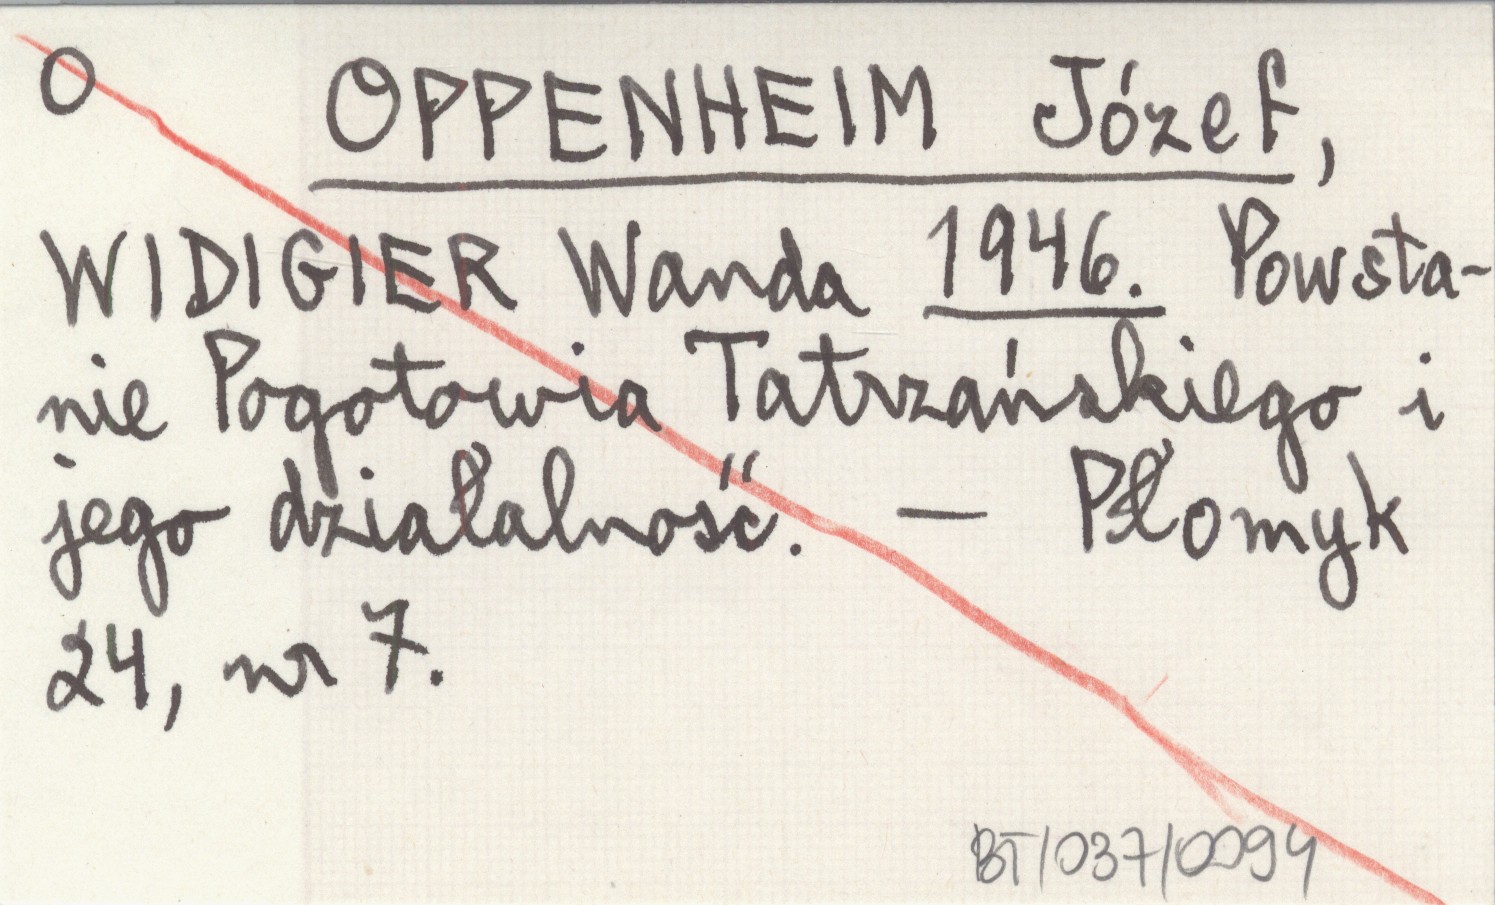 O OPPENHEIM Józef,
WIDIGIER Wanda 1946. Powsta-
nie Pogotowia Tatrzańskiego i
jego działalność. — Płomyk
24, nr 7.
BT/037/0094